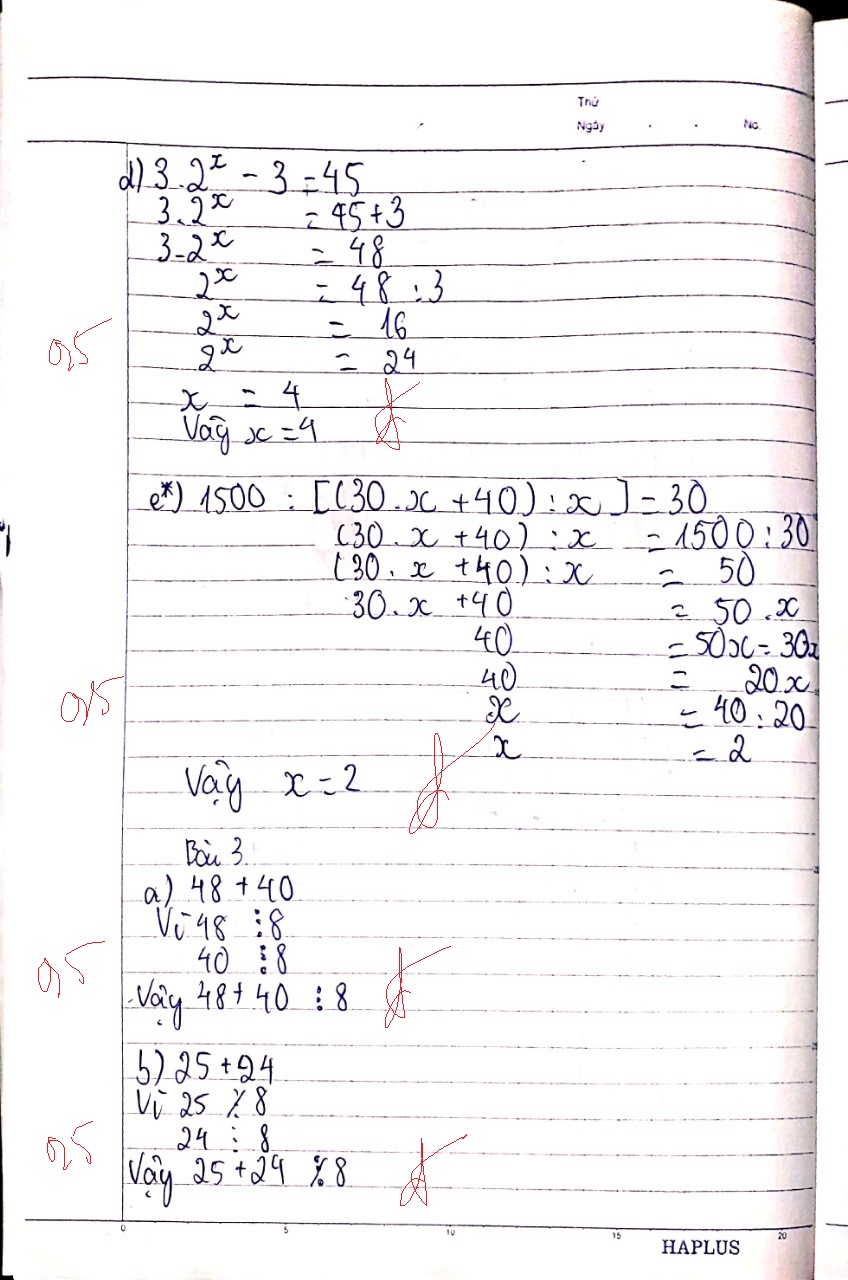 Thứ
Ngày . . No.
d) 3.2ˣ - 3 = 45
3.2ˣ = 45+3
3-2ˣ = 48
2ˣ = 48 : 3
0,5
2ˣ = 16
2ˣ = 24
x = 4
Đ
Vậy x = 4
e*) 1500 : [(30.x + 40) : x] = 30
(30.x + 40) : x = 1500 : 30
(30.x + 40) : x = 50
30.x + 40 = 50.x
40 = 50x - 30x
40 = 20x
0,5
x = 40 : 20
x = 2
Đ
Vậy x = 2
Bài 3
a) 48 + 40
Vì 48 ⋮ 8
40 ⋮ 8
0,5
Đ
Vậy 48 + 40 ⋮ 8
b) 25 + 24
Vì 25 ⋮̸ 8
24 ⋮ 8
0,5
Đ
Vậy 25 + 24 ⋮̸ 8
0 5 10 15 20
HAPLUS